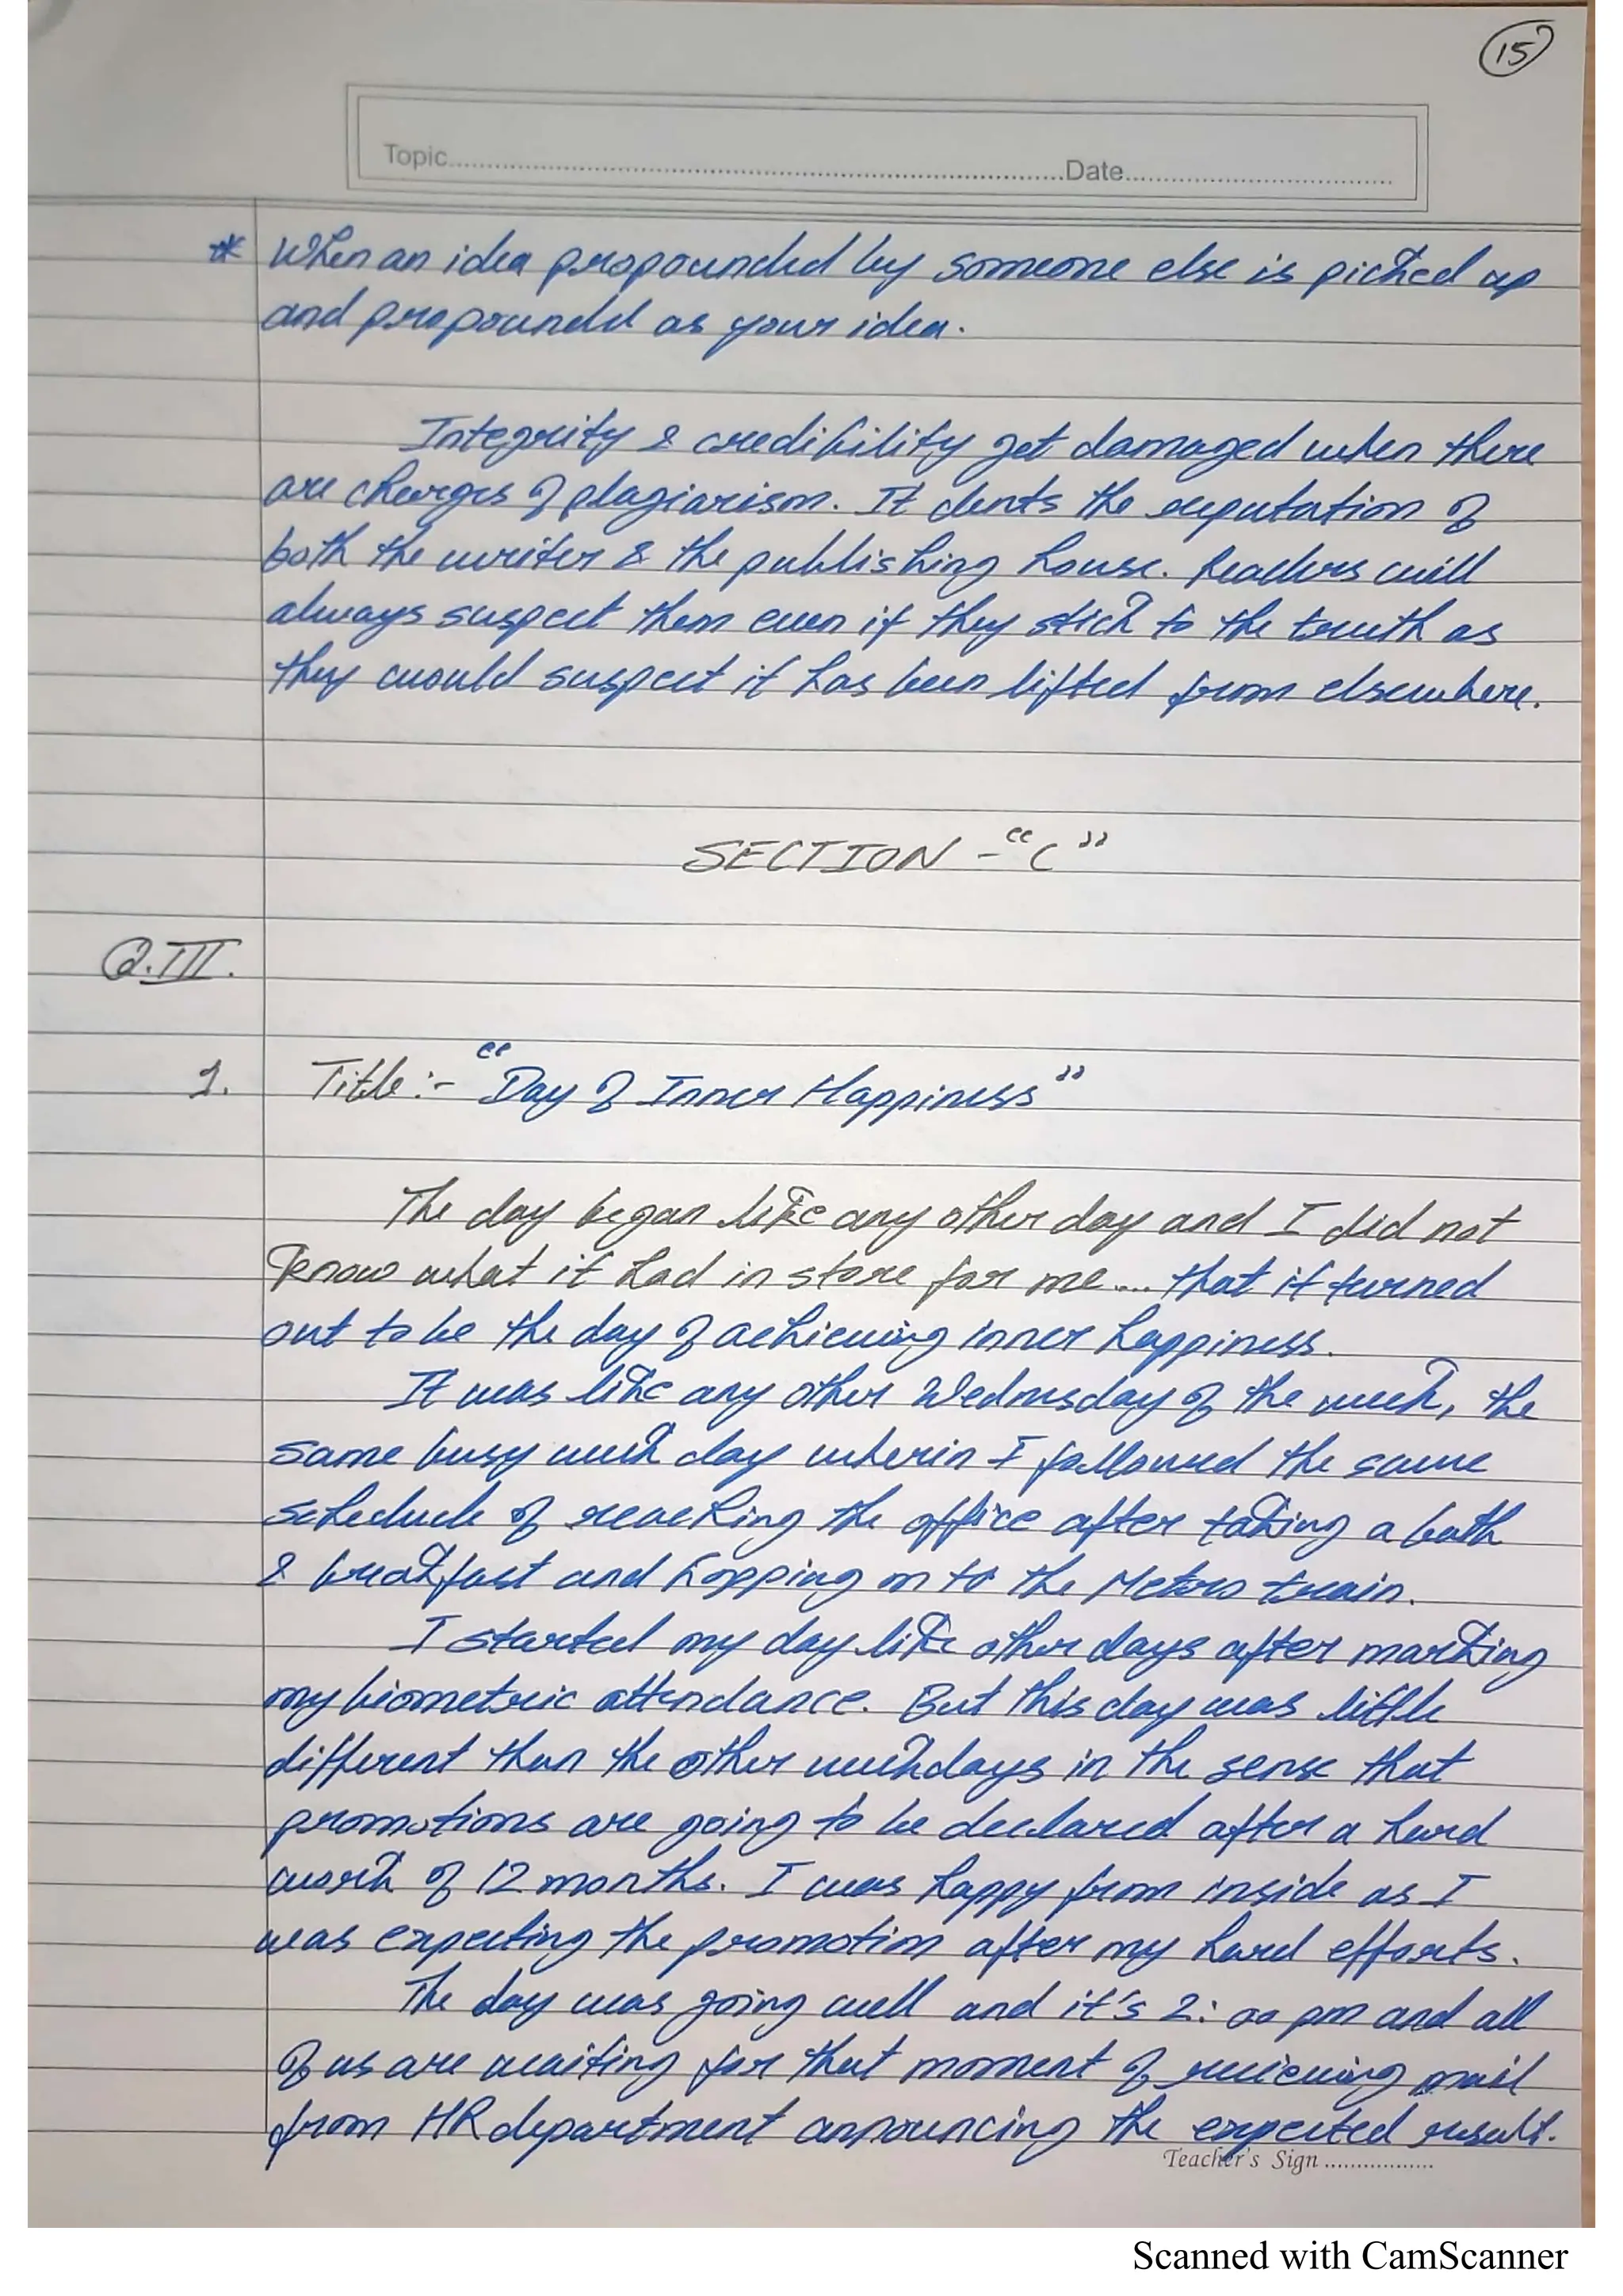 15
Topic..........Date..........
* When an idea propounded by someone else is picked up
and propounded as your idea.
Integrity & credibility get damaged when there
are charges of plagiarism. It dents the reputation of
both the writer & the publishing house. Readers will
always suspect them even if they stick to the truth as
they would suspect it has been lifted from elsewhere.
SECTION - "C"
Q.III.
1. Title:- "Day of Inner Happiness"
The day began like any other day and I did not
know what it had in store for me.... that it turned
out to be the day of achieving inner happiness.
It was like any other Wednesday of the week, the
same busy week day wherin I followed the same
schedule of reaching the office after taking a bath
& breakfast and hopping on to the Metro train.
I started my day like other days after marking
my biometric attendance. But this day was little
different than the other weekdays in the sense that
promotions are going to be declared after a hard
work of 12 months. I was happy from inside as I
was expecting the promotion after my hard efforts.
The day was going well and it's 2:00 pm and all
of us are waiting for that moment of recieving mail
from HR department announcing the expected result.
Teacher's Sign ..................
Scanned with CamScanner